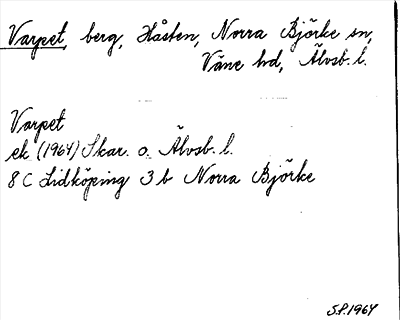 Varpet, berg, Håsten, Norra Björke sn,
Väne hd, Älvsb. l.
Varpet
ek (1964) Skar. o. Älvsb. l.
8 C Lidköping 3 b Norra Björke
S.P. 1964